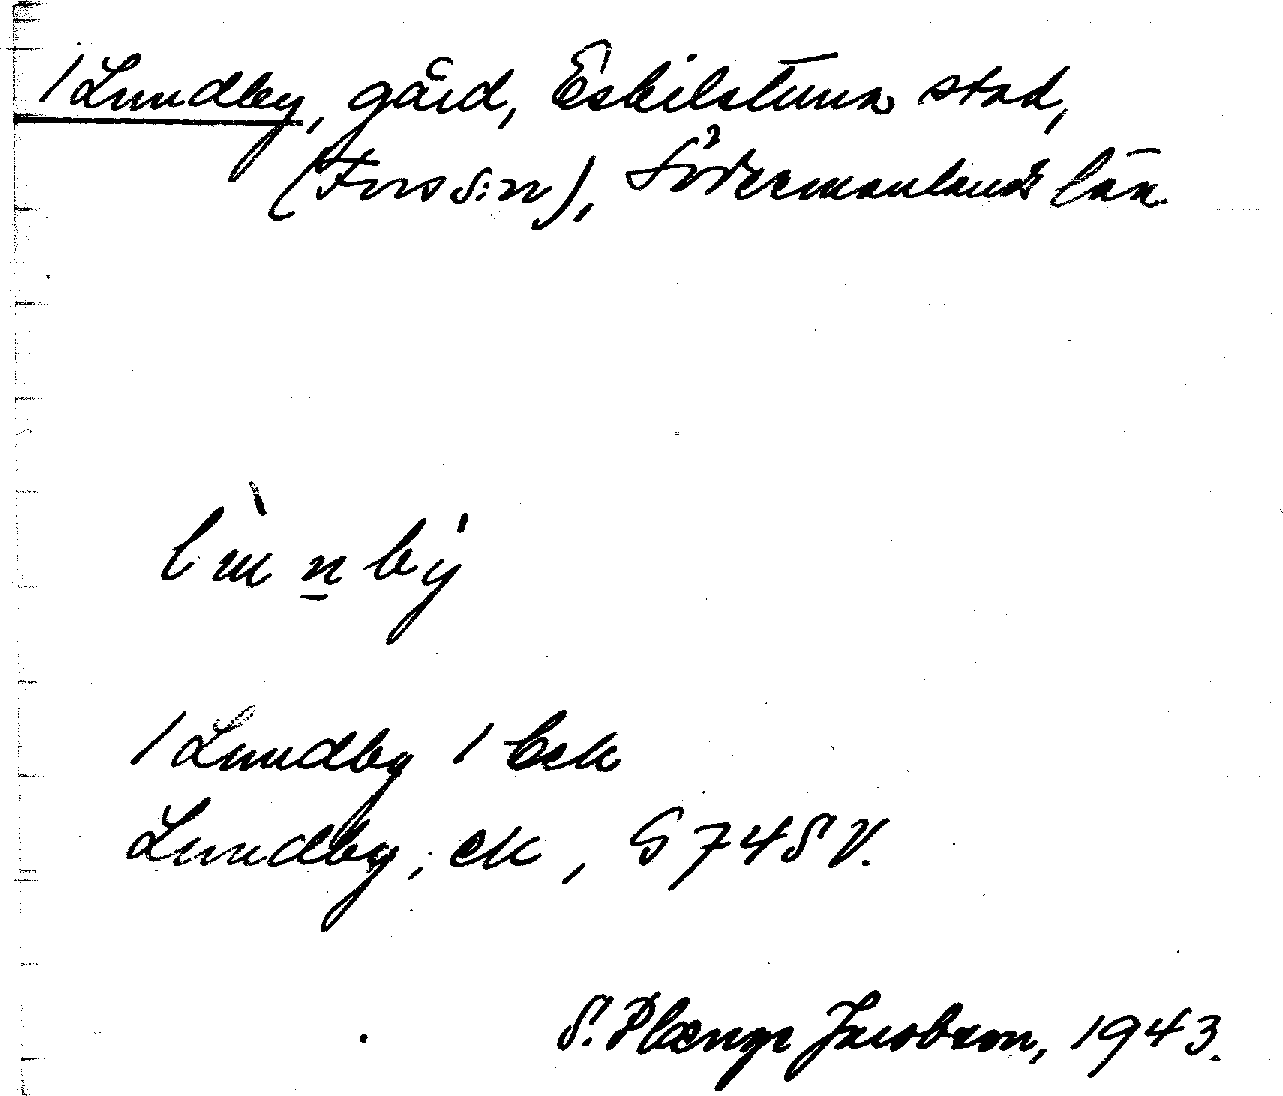 /Lundby, gård, Eskilstuna stad,
(Fors s:n), Södermanlands län.
lùnbý
/Lundby / bck
Lundby, ek, G 74 S V.
S. Plænge Jacobson, 1943.